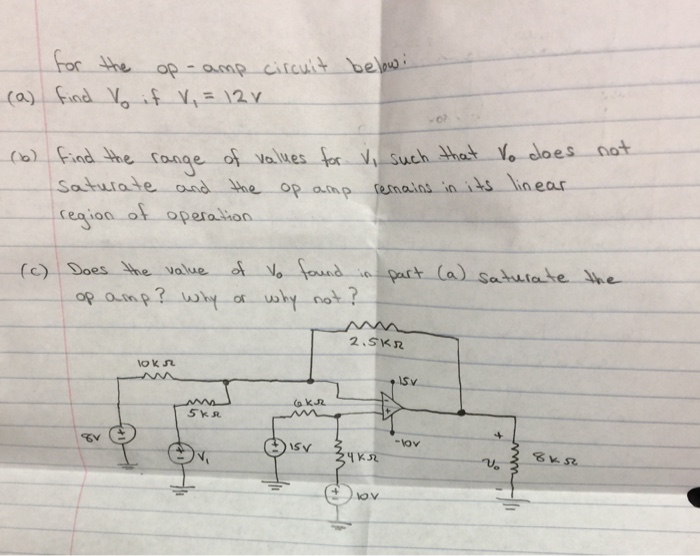 for the op-amp circuit below:
(a) find Vo if V₁ = 12v
(b) find the range of values for V₁ such that Vo does not
saturate and the op amp remains in its linear
region of operation
(c) Does the value of Vo found in part (a) saturate the
op amp? Why or why not?
2.5KΩ
10KΩ
15V
5KΩ
6KΩ
8V
V₁
15V
4KΩ
-10V
+
Vo
-
8KΩ
10V